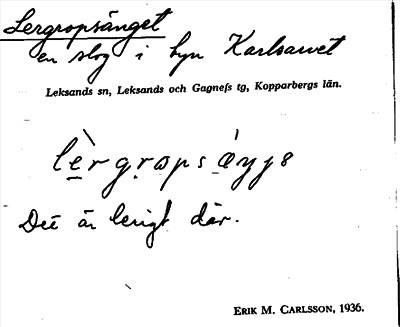 Lergropsänget
en slog i byn Karlsarvet
Leksands sn, Leksands och Gagnefs tg, Kopparbergs län.
Det är lerigt där.
ERIK M. CARLSSON, 1936.